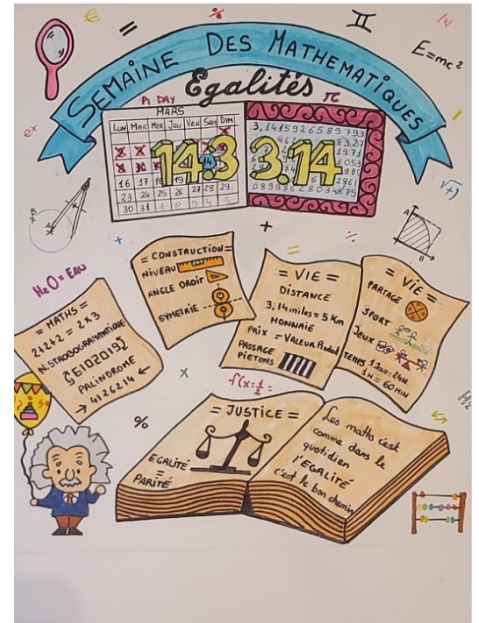 SEMAINE DES MATHEMATIQUES
Egalités
E=mc²
PI DAY
π
MARS
LUN MAR MER JEU VEN SAM DIM
14.3
3.14
16 17
23 24 25 26 27 28 29
30 31
3,14159265 8979 3
H₂O = EAU
= MATHS =
2+2+2 = 2×3
N.STROBOGRAMMATIQUE
PALINDROME
→ 4126214 ←
= CONSTRUCTION =
NIVEAU
ANGLE DROIT
SYMETRIE
= VIE =
DISTANCE
3,14 miles = 5 Km
MONNAIE
PRIX = VALEUR
PASSAGE
PIETONS
= VIE =
PARTAGE
SPORT
JEUX
TEMPS 1 JOUR = 24H
1H = 60 MIN
%
= JUSTICE =
EGALITÉ
=
PARITÉ
Les maths c'est
comme dans le
quotidien
l'EGALITÉ
c'est le bon chemin